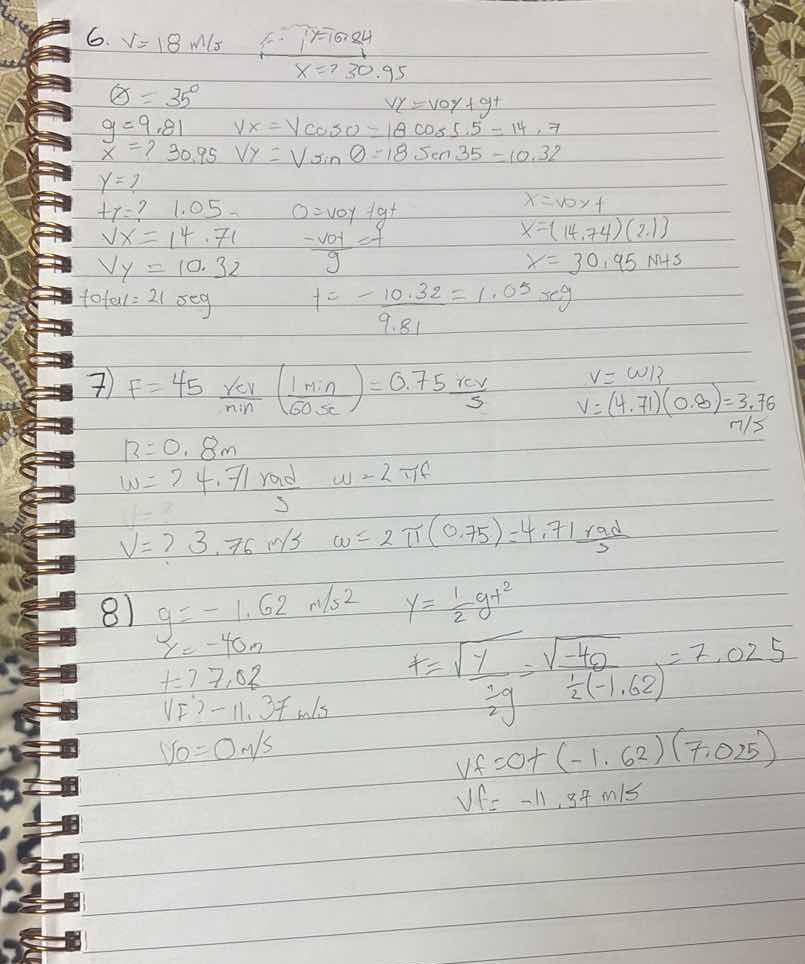 6. V=18 m/s Y=16.24
X=? 30.95
θ = 35°
Vy=voy+gt
g=9.81 Vx=Vcosθ=18 cos 5.5-14.7
x=? 30.95 Vy=Vsinθ=18 sen 35-10.32
Y=?
ty=? 1.05- 0=voy+gt X=voxt
Vx=14.71 -voy/g=t X=(14.74)(2.1)
Vy=10.32 X= 30.95 Mts
total=21 seg t= -10.32/9.81 = 1.05 seg
7) F=45 rev/min (1min/60sc)=0.75 rev/s V=ωR
V=(4.71)(0.8)=3.76 m/s
R=0.8m
ω=? 4.71 rad/s ω-2πf
V=? 3.76 m/s ω=2π(0.75)=4.71 rad/s
8) g=-1.62 m/s2 Y=1/2gt²
Y=-40m
t=? 7.02 t=√(Y/½g)=√(-40/½(-1.62))=7.025
VF?-11.37 m/s
Vo=0m/s
Vf=0+(-1.62)(7.025)
Vf=-11.37 m/s